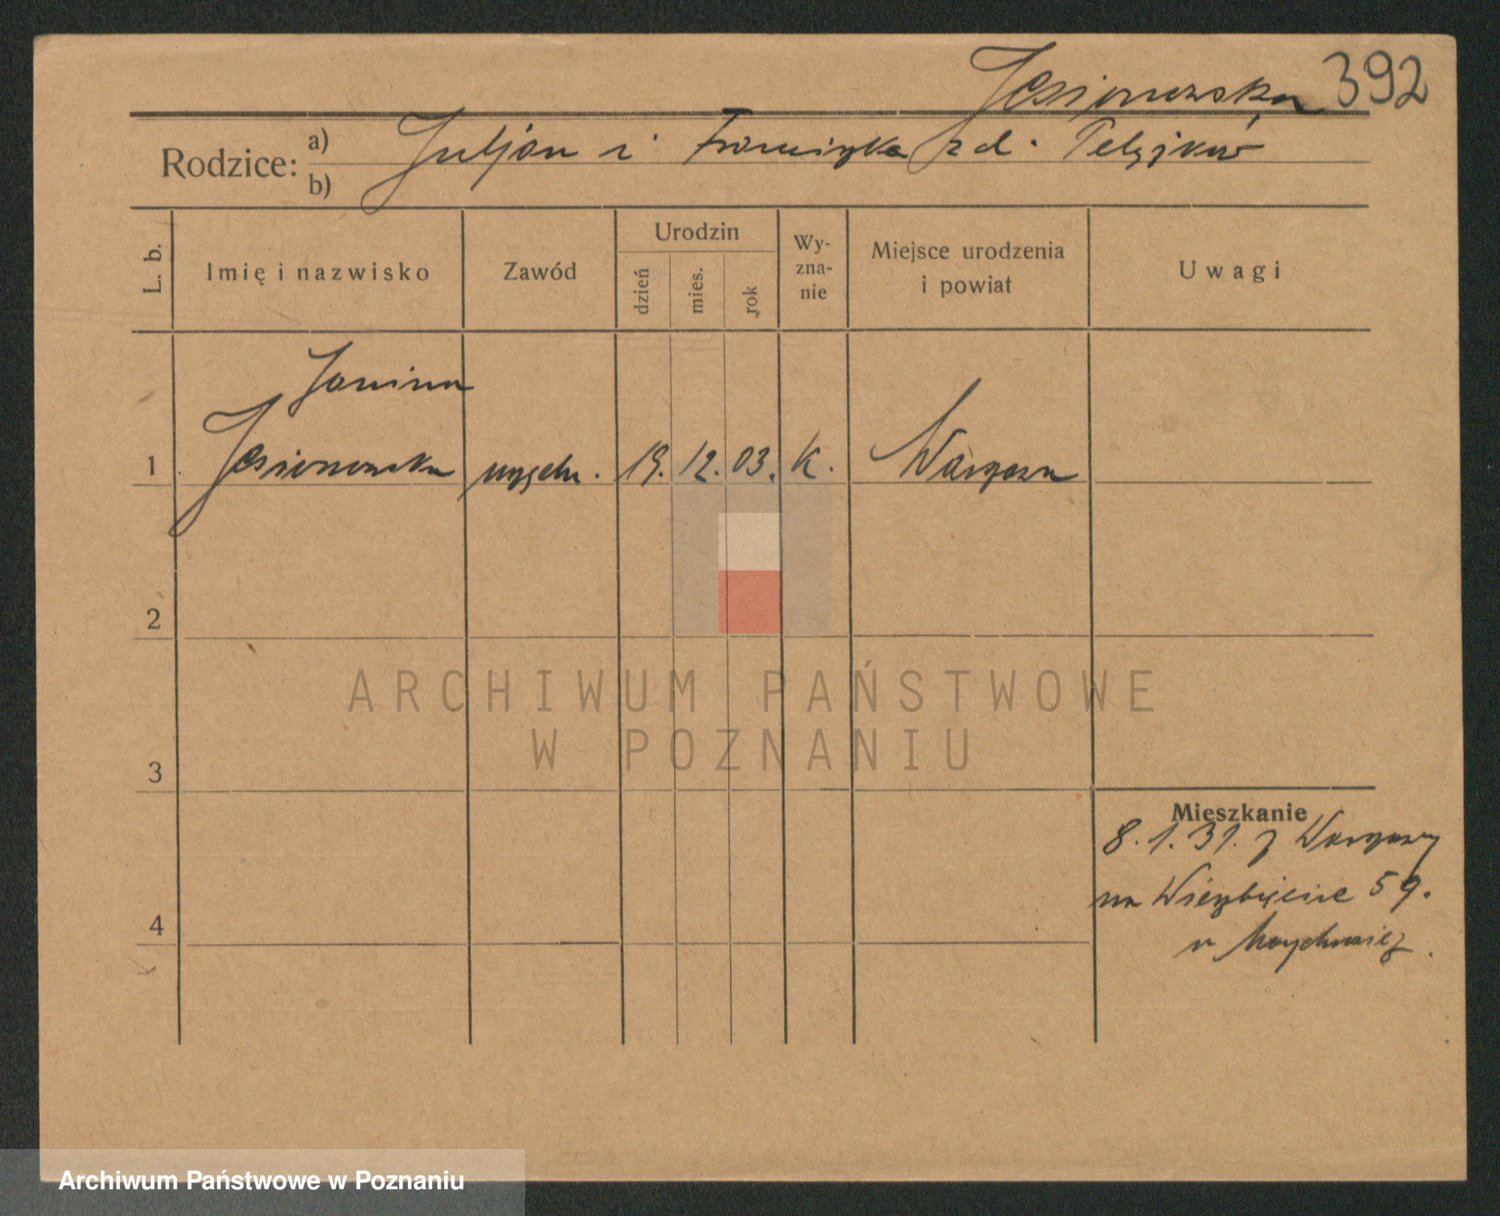 Jesionowska 392
Rodzice: a) Juljan i Franciszka z d.
b)
L. b.
Imię i nazwisko
Zawód
Urodzin
dzień
mies.
rok
Wy-
zna-
nie
Miejsce urodzenia
i powiat
Uwagi
Janina
1 Jesionowska 19. 12. 03. k. Warszawa
2
ARCHIWUM PAŃSTWOWE
W POZNANIU
3
Mieszkanie
8. 1. 31. z Warszawy
na Wierzbięcice 59.
4
Archiwum Państwowe w Poznaniu